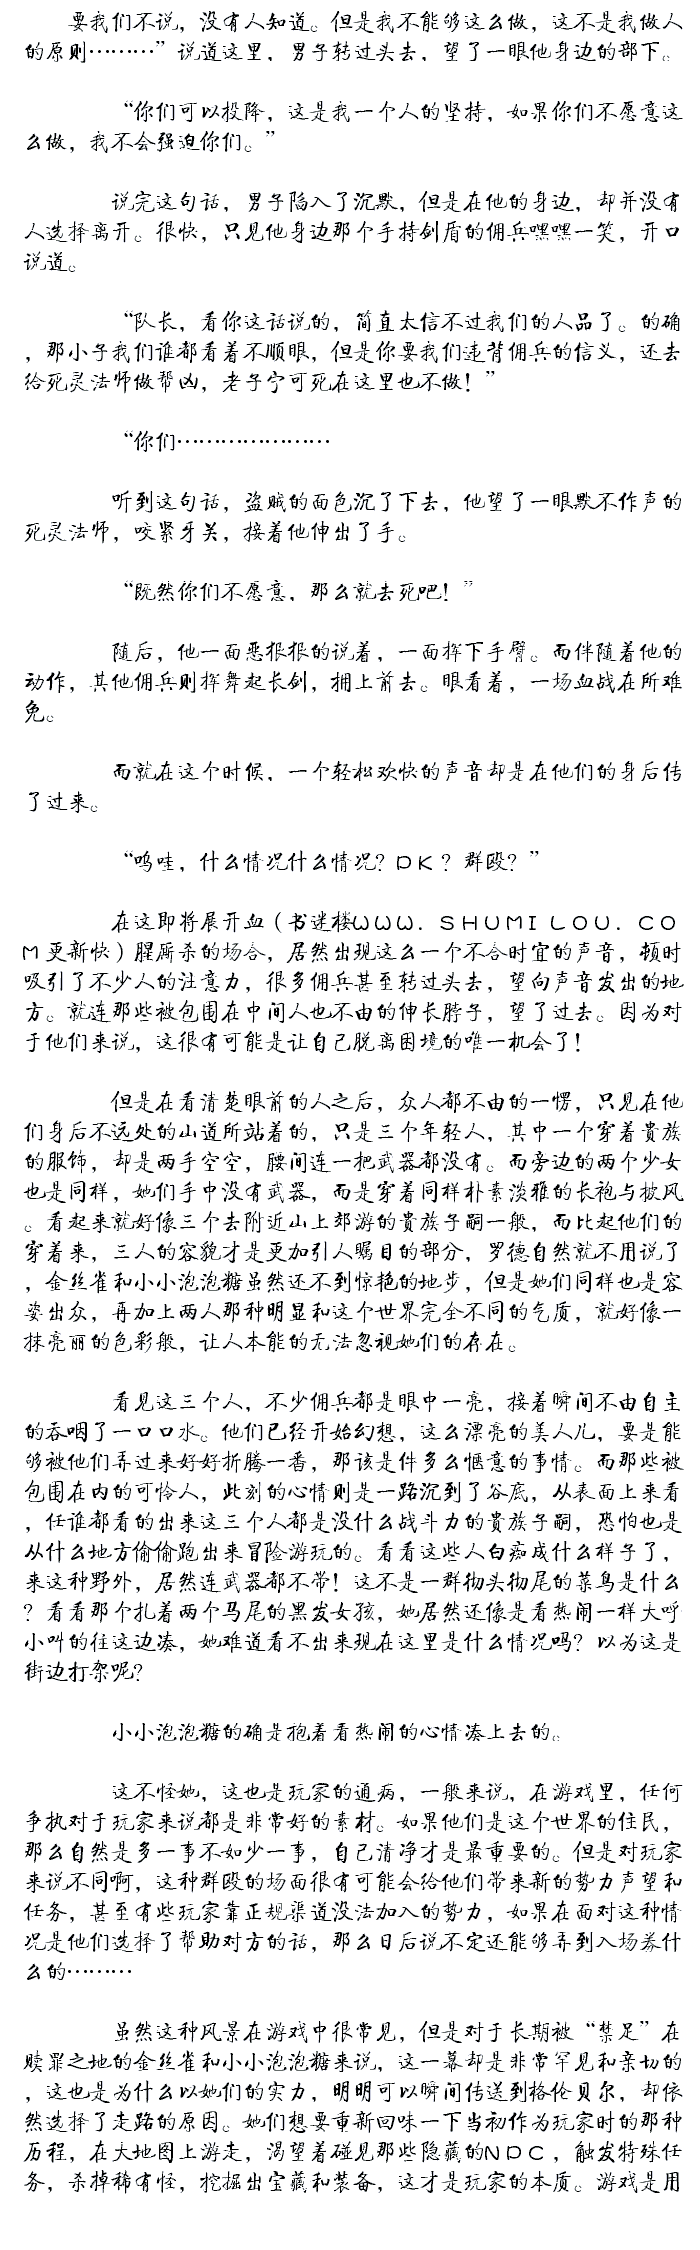 要我们不说，没有人知道。但是我不能够这么做，这不是我做人
的原则………”说道这里，男子转过头去，望了一眼他身边的部下。
“你们可以投降，这是我一个人的坚持，如果你们不愿意这
么做，我不会强迫你们。”
说完这句话，男子陷入了沉默，但是在他的身边，却并没有
人选择离开。很快，只见他身边那个手持剑盾的佣兵嘿嘿一笑，开口
说道。
“队长，看你这话说的，简直太信不过我们的人品了。的确
，那小子我们谁都看着不顺眼，但是你要我们违背佣兵的信义，还去
给死灵法师做帮凶，老子宁可死在这里也不做！”
“你们…………………
听到这句话，盗贼的面色沉了下去，他望了一眼默不作声的
死灵法师，咬紧牙关，接着他伸出了手。
“既然你们不愿意，那么就去死吧！”
随后，他一面恶狠狠的说着，一面挥下手臂。而伴随着他的
动作，其他佣兵则挥舞起长剑，拥上前去。眼看着，一场血战在所难
免。
而就在这个时候，一个轻松欢快的声音却是在他们的身后传
了过来。
“呜哇，什么情况什么情况？ＰＫ？群殴？”
在这即将展开血（书迷楼ＷＷＷ．ＳＨＵＭＩＬＯＵ．ＣＯ
Ｍ更新快）腥厮杀的场合，居然出现这么一个不合时宜的声音，顿时
吸引了不少人的注意力，很多佣兵甚至转过头去，望向声音发出的地
方。就连那些被包围在中间人也不由的伸长脖子，望了过去。因为对
于他们来说，这很有可能是让自己脱离困境的唯一机会了！
但是在看清楚眼前的人之后，众人都不由的一愣，只见在他
们身后不远处的山道所站着的，只是三个年轻人，其中一个穿着贵族
的服饰，却是两手空空，腰间连一把武器都没有。而旁边的两个少女
也是同样，她们手中没有武器，而是穿着同样朴素淡雅的长袍与披风
。看起来就好像三个去附近山上郊游的贵族子嗣一般，而比起他们的
穿着来，三人的容貌才是更加引人瞩目的部分，罗德自然就不用说了
，金丝雀和小小泡泡糖虽然还不到惊艳的地步，但是她们同样也是容
姿出众，再加上两人那种明显和这个世界完全不同的气质，就好像一
抹亮丽的色彩般，让人本能的无法忽视她们的存在。
看见这三个人，不少佣兵都是眼中一亮，接着瞬间不由自主
的吞咽了一口口水。他们已经开始幻想，这么漂亮的美人儿，要是能
够被他们弄过来好好折腾一番，那该是件多么惬意的事情。而那些被
包围在内的可怜人，此刻的心情则是一路沉到了谷底，从表面上来看
，任谁都看的出来这三个人都是没什么战斗力的贵族子嗣，恐怕也是
从什么地方偷偷跑出来冒险游玩的。看看这些人白痴成什么样子了，
来这种野外，居然连武器都不带！这不是一群彻头彻尾的菜鸟是什么
？看看那个扎着两个马尾的黑发女孩，她居然还像是看热闹一样大呼
小叫的往这边凑，她难道看不出来现在这里是什么情况吗？以为这是
街边打架呢？
小小泡泡糖的确是抱着看热闹的心情凑上去的。
这不怪她，这也是玩家的通病，一般来说，在游戏里，任何
争执对于玩家来说都是非常好的素材。如果他们是这个世界的住民，
那么自然是多一事不如少一事，自己清净才是最重要的。但是对玩家
来说不同啊，这种群殴的场面很有可能会给他们带来新的势力声望和
任务，甚至有些玩家靠正规渠道没法加入的势力，如果在面对这种情
况是他们选择了帮助对方的话，那么日后说不定还能够弄到入场券什
么的………
虽然这种风景在游戏中很常见，但是对于长期被“禁足”在
赎罪之地的金丝雀和小小泡泡糖来说，这一幕却是非常罕见和亲切的
，这也是为什么以她们的实力，明明可以瞬间传送到格伦贝尔，却依
然选择了走路的原因。她们想要重新回味一下当初作为玩家时的那种
历程，在大地图上游走，渴望着碰见那些隐藏的ＮＰＣ，触发特殊任
务，杀掉稀有怪，挖掘出宝藏和装备，这才是玩家的本质。游戏是用